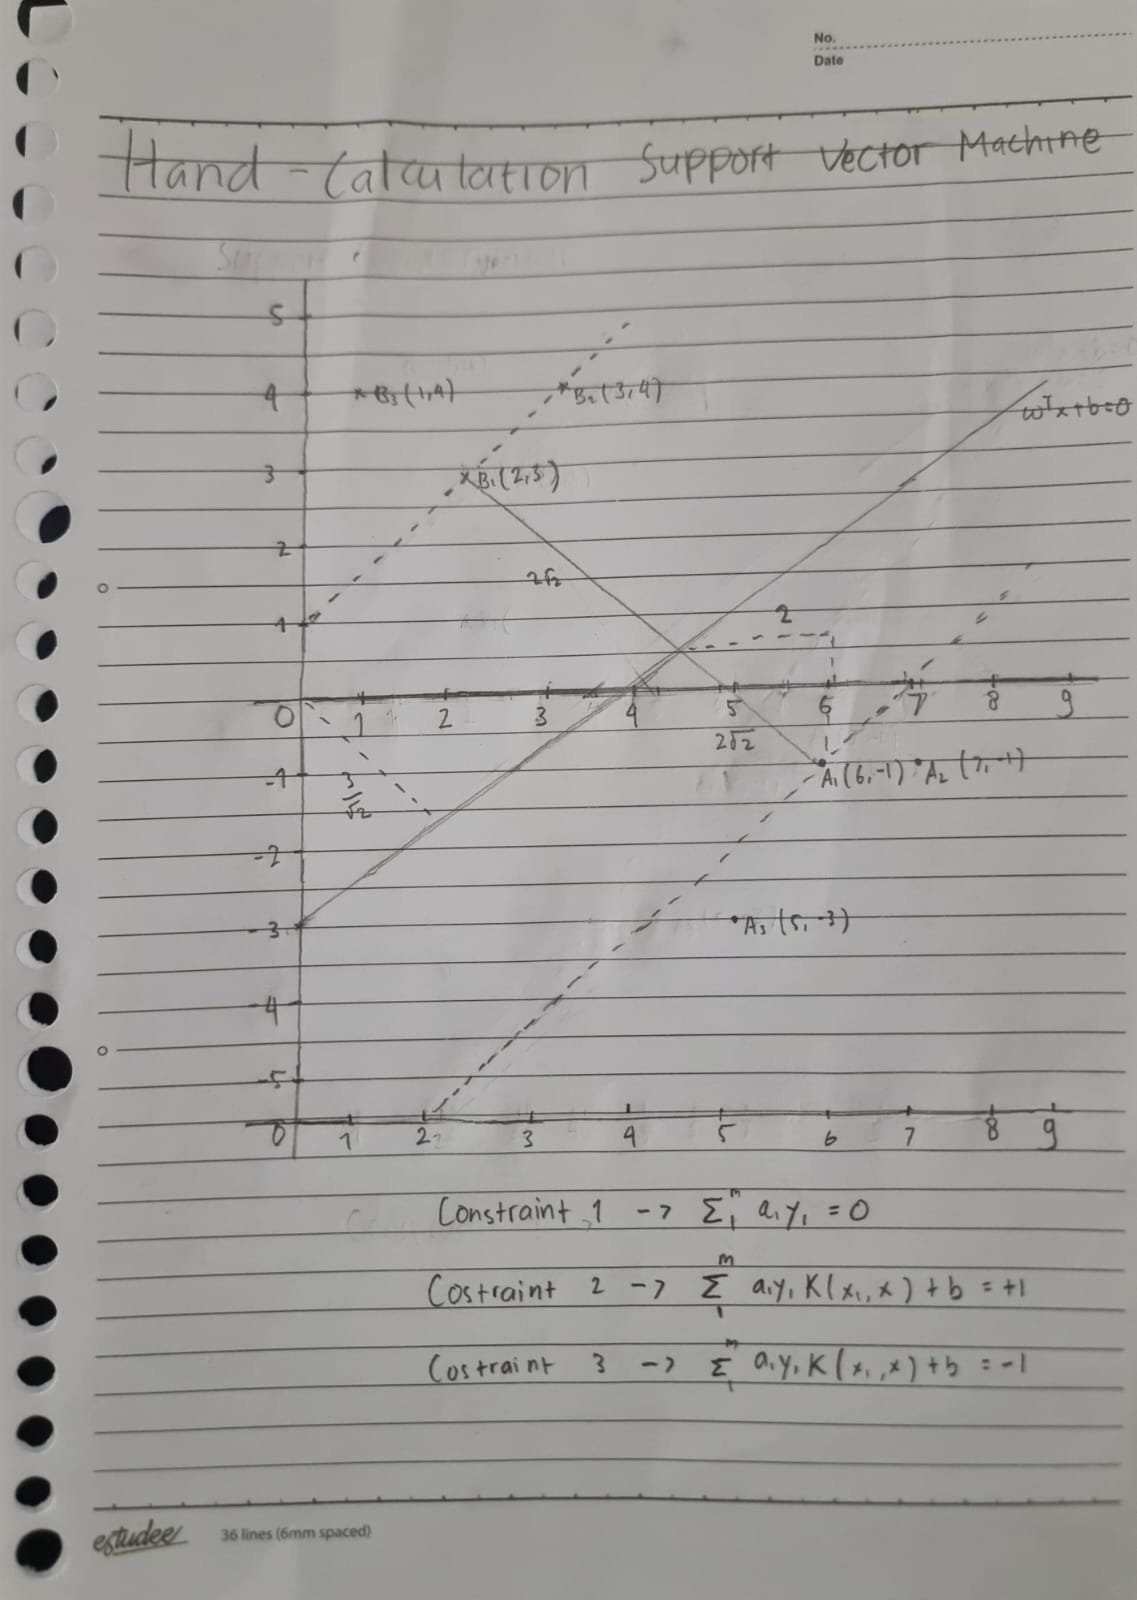 No.
Date
Hand-Calculation Support Vector Machine
5
4 B₃(1,4) B₂(3,4)
wᵀx+b=0
3 B₁(2,3)
2
2√2
1 2
0 1 2 3 4 5 6 7 8 9
2√2
-1 3/√2 A₁(6,-1) A₂(7,-1)
-2
-3 A₃(5,-3)
-4
-5
0 1 2 3 4 5 6 7 8 9
Constraint 1 -> Σ₁ᵐ a₁y₁ = 0
Costraint 2 -> Σ₁ᵐ a₁y₁K(x₁,x)+b = +1
Costraint 3 -> Σ₁ᵐ a₁y₁K(x₁,x)+b = -1
estudee 36 lines (6mm spaced)